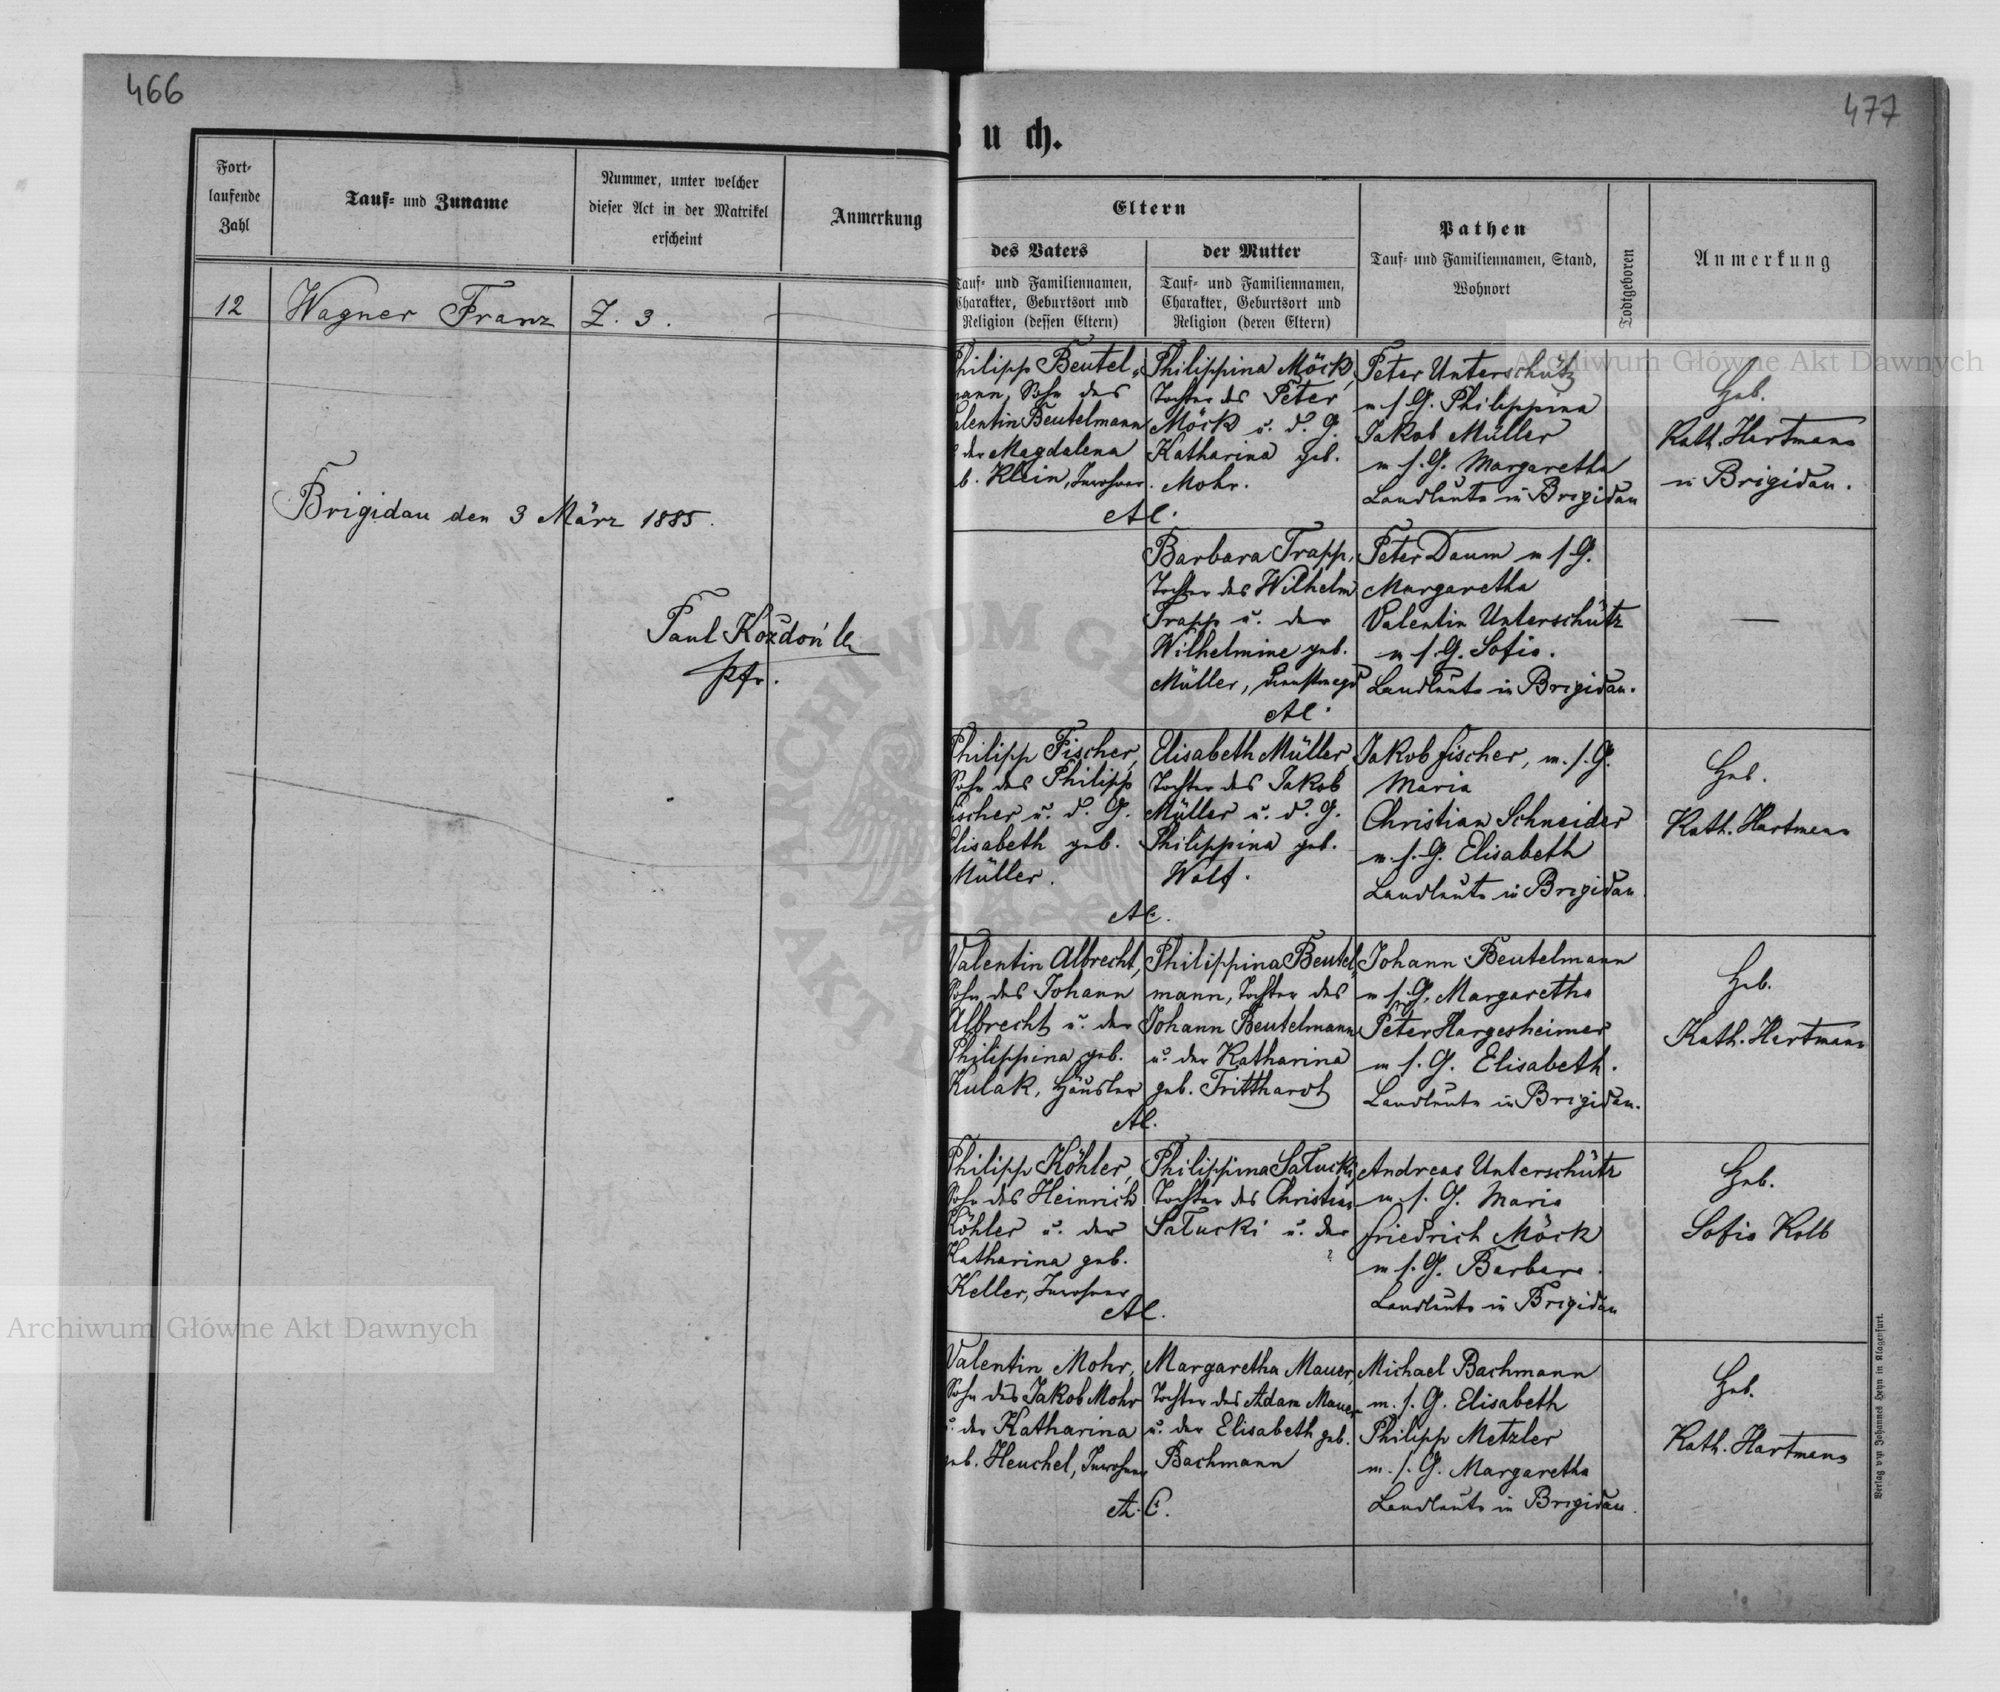 466
Fort-
laufende
Zahl
Tauf- und Zuname
Nummer, unter welcher
dieser Act in der Matrikel
erscheint
Anmerkung
12 Wagner Franz Z. 3.
Brigidau den 3 März 1885.
Paul Kozdoń
Pfr.
477
uch.
Eltern
des Vaters
Tauf- und Familiennamen,
Charakter, Geburtsort und
Religion (dessen Eltern)
der Mutter
Tauf- und Familiennamen,
Charakter, Geburtsort und
Religion (deren Eltern)
Pathen
Tauf- und Familiennamen, Stand,
Wohnort
Todtgeboren
Anmerkung
Philipp Beutel-
mann, Sohn des
Valentin Beutelmann
der Magdalena
geb. Klein, Inwohner.
Philippina Möck,
Tochter des Peter
Möck u. d. G.
Katharina geb.
Mohr.
A C.
Peter Unterschütz
m s. G. Philippina
Jakob Müller
m s. G. Margaretha
Landleute in Brigidau
Heb.
Kath. Hartmann
in Brigidau.
Barbara Trapp,
Tochter des Wilhelm
Trapp u. der
Wilhelmine geb.
Müller, Dienstmagd
A C.
Peter Daum m s. G.
Margaretha
Valentin Unterschütz
m s. G. Sofia.
Landleute in Brigidau.
—
Philipp Fischer,
Sohn des Philipp
Fischer u. d. G.
Elisabeth geb.
Müller.
Elisabeth Müller,
Tochter des Jakob
Müller u. d. G.
Philippina geb.
Wolf.
A C.
Jakob Fischer, m. s. G.
Maria
Christian Schneider
m. s. G. Elisabeth
Landleute in Brigidau
Heb.
Kath. Hartmann
Valentin Albrecht,
Sohn des Johann
Albrecht u. der
Philippina geb.
Kulak, Häusler
Philippina Beutel-
mann, Tochter des
Johann Beutelmann
u. der Katharina
geb. Tritthardt
A C.
Johann Beutelmann
m s. G. Margaretha
Peter Hargesheimer
m s. G. Elisabeth.
Landleute in Brigidau.
Heb.
Kath. Hartmann
Philipp Köhler,
Sohn des Heinrich
Köhler u. der
Katharina geb.
Keller, Inwohner
Philippina Satucki,
Tochter des Christian
Satucki u. der
?
A C.
Andreas Unterschütz
m. s. G. Maria
Friedrich Möck
m s. G. Barbara.
Landleute in Brigidau
Heb.
Sofia Kolb
Valentin Mohr,
Sohn des Jakob Mohr
u. der Katharina
geb. Heuchel, Inwohner
Margaretha Mauer,
Tochter des Adam Mauer
u. der Elisabeth geb.
Bachmann
A. C.
Michael Bachmann
m. s. G. Elisabeth
Philipp Metzler
m. s. G. Margaretha
Landleute in Brigidau.
Heb.
Kath. Hartmann
Verlag von Johannes Heyn in Klagenfurt.
Archiwum Główne Akt Dawnych
Archiwum Główne Akt Dawnych